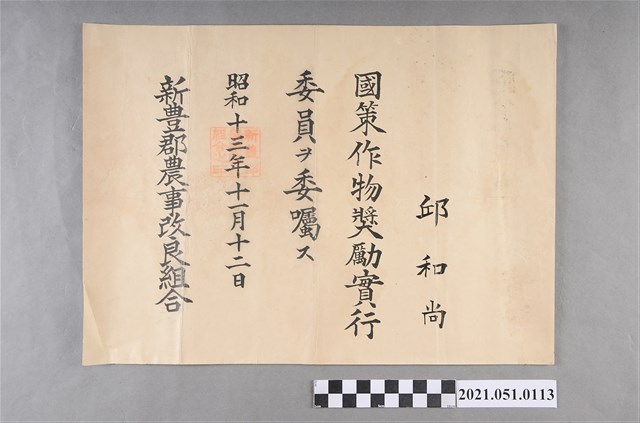 邱和尚
國策作物奬勵實行
委員ヲ委囑ス
昭和十三年十一月十二日
新豐郡農事改良組合
2021.051.0113